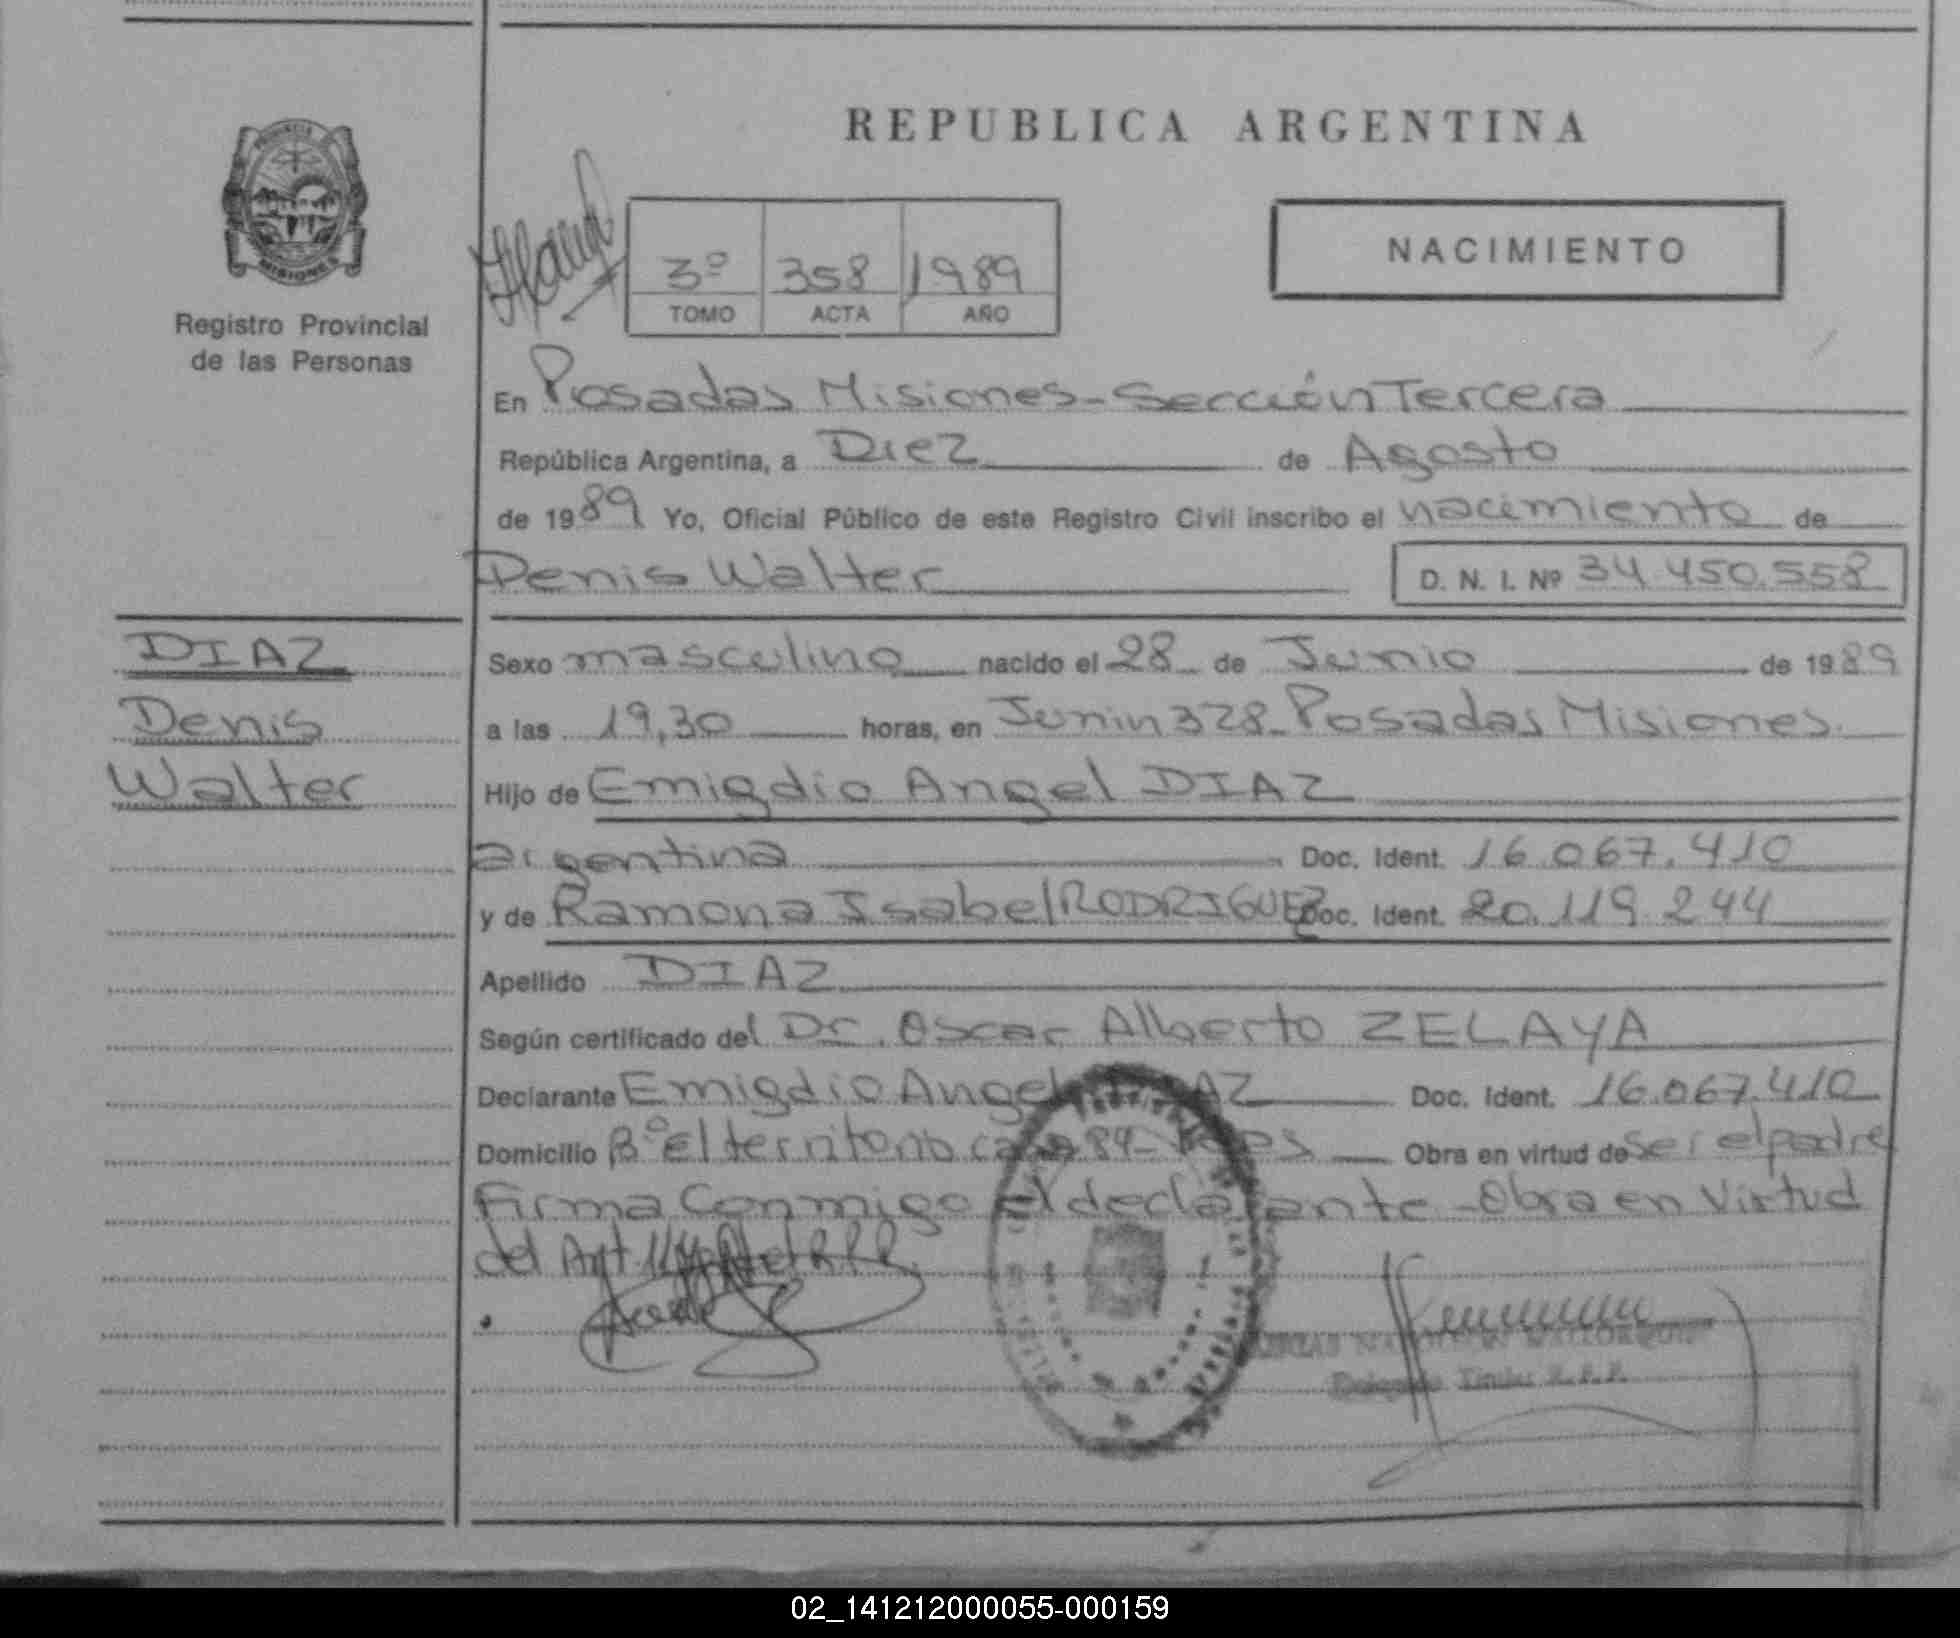 REPUBLICA ARGENTINA
MISIONES
Registro Provincial
de las Personas
3º 358 1989
TOMO ACTA AÑO
NACIMIENTO
En Posadas Misiones - Sección Tercera
República Argentina, a Diez de Agosto
de 1989 Yo, Oficial Público de este Registro Civil inscribo el nacimiento de
Denis Walter D. N. I. Nº 34.450.558
DIAZ
Denis
Walter
Sexo masculino nacido el 28 de Junio de 1989
a las 19,30 horas, en Junin 328 - Posadas Misiones.
Hijo de Emigdio Angel DIAZ
argentina Doc. Ident. 16.067.410
y de Ramona Isabel RODRIGUEZ Doc. Ident. 20.119.244
Apellido DIAZ
Según certificado del Dr. Oscar Alberto ZELAYA
Declarante Emigdio Angel DIAZ Doc. Ident. 16.067.410
Domicilio Bº El territorio casa 84 - Obra en virtud de ser el padre
Firma Conmigo el declarante - Obra en Virtud
del Art.
Titular R. P. P.
02_141212000055-000159